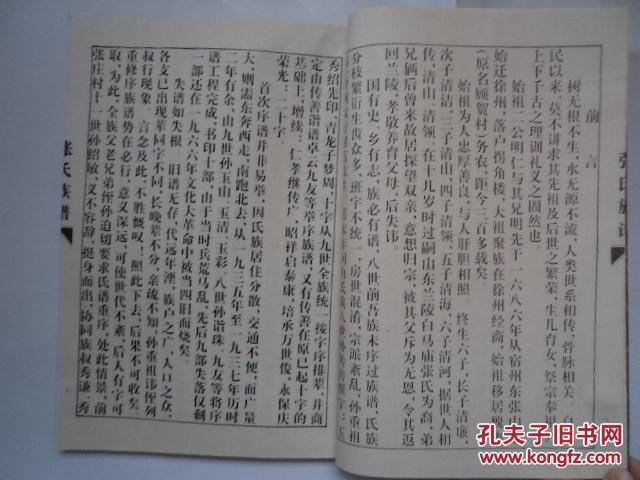 张氏族谱
前言
树无根不生，水无源不流，人类世系相传，骨脉相关。自
民以来，莫不讲求其先祖及后世之繁荣，生儿育女，祭宗奉祖
上下千古之理训礼义之固然也。
始祖二公明仁与其兄明先于一六八六年从宿州东张山
始迁徐州，落户拐角楼，大祖聚族在徐州经商，始祖移居
（原名顾贺村）务农，距今三百多载矣。
始祖为人忠厚善良，与人肝胆相照。终生六子，长子清廉
次子清洁，三子清山，四子清领，五子清海，六子清河，据世人相
传，清山、清领，在十几岁时过嗣山东兰陵白马庙张氏为裔，弟
兄俩后曾来故居探望双亲，意想归宗，被其父斥为无恩，令其返
回兰陵，孝敬养育父母，后失讳。
国有史，乡有志，族必有谱，八世前吾族未序过族谱，氏族
分枝繁衍生齿众多，班字不统一，房世混淆，宗派紊乱，孙重祖
秀绍先印，青龙子梦周，十字从九世全族统一按字序排辈，并商
定由传善诣谱卓云九友等举序族谱，又有传善在原已起十字的
基础上，增续：仁孝继传广，昭祥启泰康，培承万世俊，永保庆
荣光：二十字。
首次序谱并非易举，因氏族居住分散，交通不便，面广量
大，一则需东奔西走，南跑北去，从一九三五年至一九三七年历时
二年有余，由九世孙玉山、玉清、玉彩，八世孙诣珠、九友等将序
谱工程完成，书印十部，由于当时兵荒马乱，先后九部失落仅剩
一部还在一九六六年文化大革命中被当四旧而烧矣。
失谱如失根，旧谱无存，代远年湮，族户之广，人口之众，
各支已出现辈同字不同，长晚辈不分，亲疏不知，孙重祖讳侄列
叔行现象，言念及此，不胜慨叹，照此下去，后果不可收矣。
重修序族谱势在必行，意义深远，可使世代不紊，后人有字可
取，为此，全族父老兄弟侄孙迫切要求氏谱重序，处此情景，前
张庄村十一世孙绍敏，义不容辞，挺身而出，协同族叔秀谦、秀
张氏族谱
孔夫子旧书网
www.kongfz.com